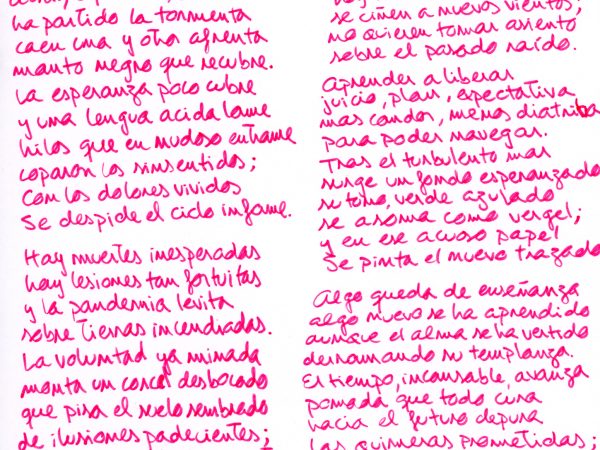 ha partido la tormenta
caen una y otra afrenta
manto negro que recubre.
La esperanza poco cubre
y una lengua acida lame
hilos que en nudoso entrame
coparon los sinsentidos;
con los dolores vividos
Se despide el ciclo infame.
Hay muertes inesperadas
hay lesiones tan fortuitas
y la pandemia levita
sobre tierras incendiadas.
La voluntad ya minada
monta un corcel desbocado
que pisa el suelo sembrado
de ilusiones padecientes;
se ciñen a nuevos vientos,
no quieren tomar asiento
sobre el pasado raído.
Aprender a liberar
juicio, plan, espectativa
mas candor, menos diatriba
para poder navegar.
Tras el turbulento mar
surge un fondo esperanzado
su tono, verde azulado
se asoma como vergel;
y en ese acuoso papel
Se pinta el nuevo trazado
Algo queda de enseñanza
algo nuevo se ha aprendido
aunque el alma se ha vertido
derramando su templanza.
El tiempo, incansable, avanza
pomada que todo cura
hacia el futuro depura
las quimeras prometidas;